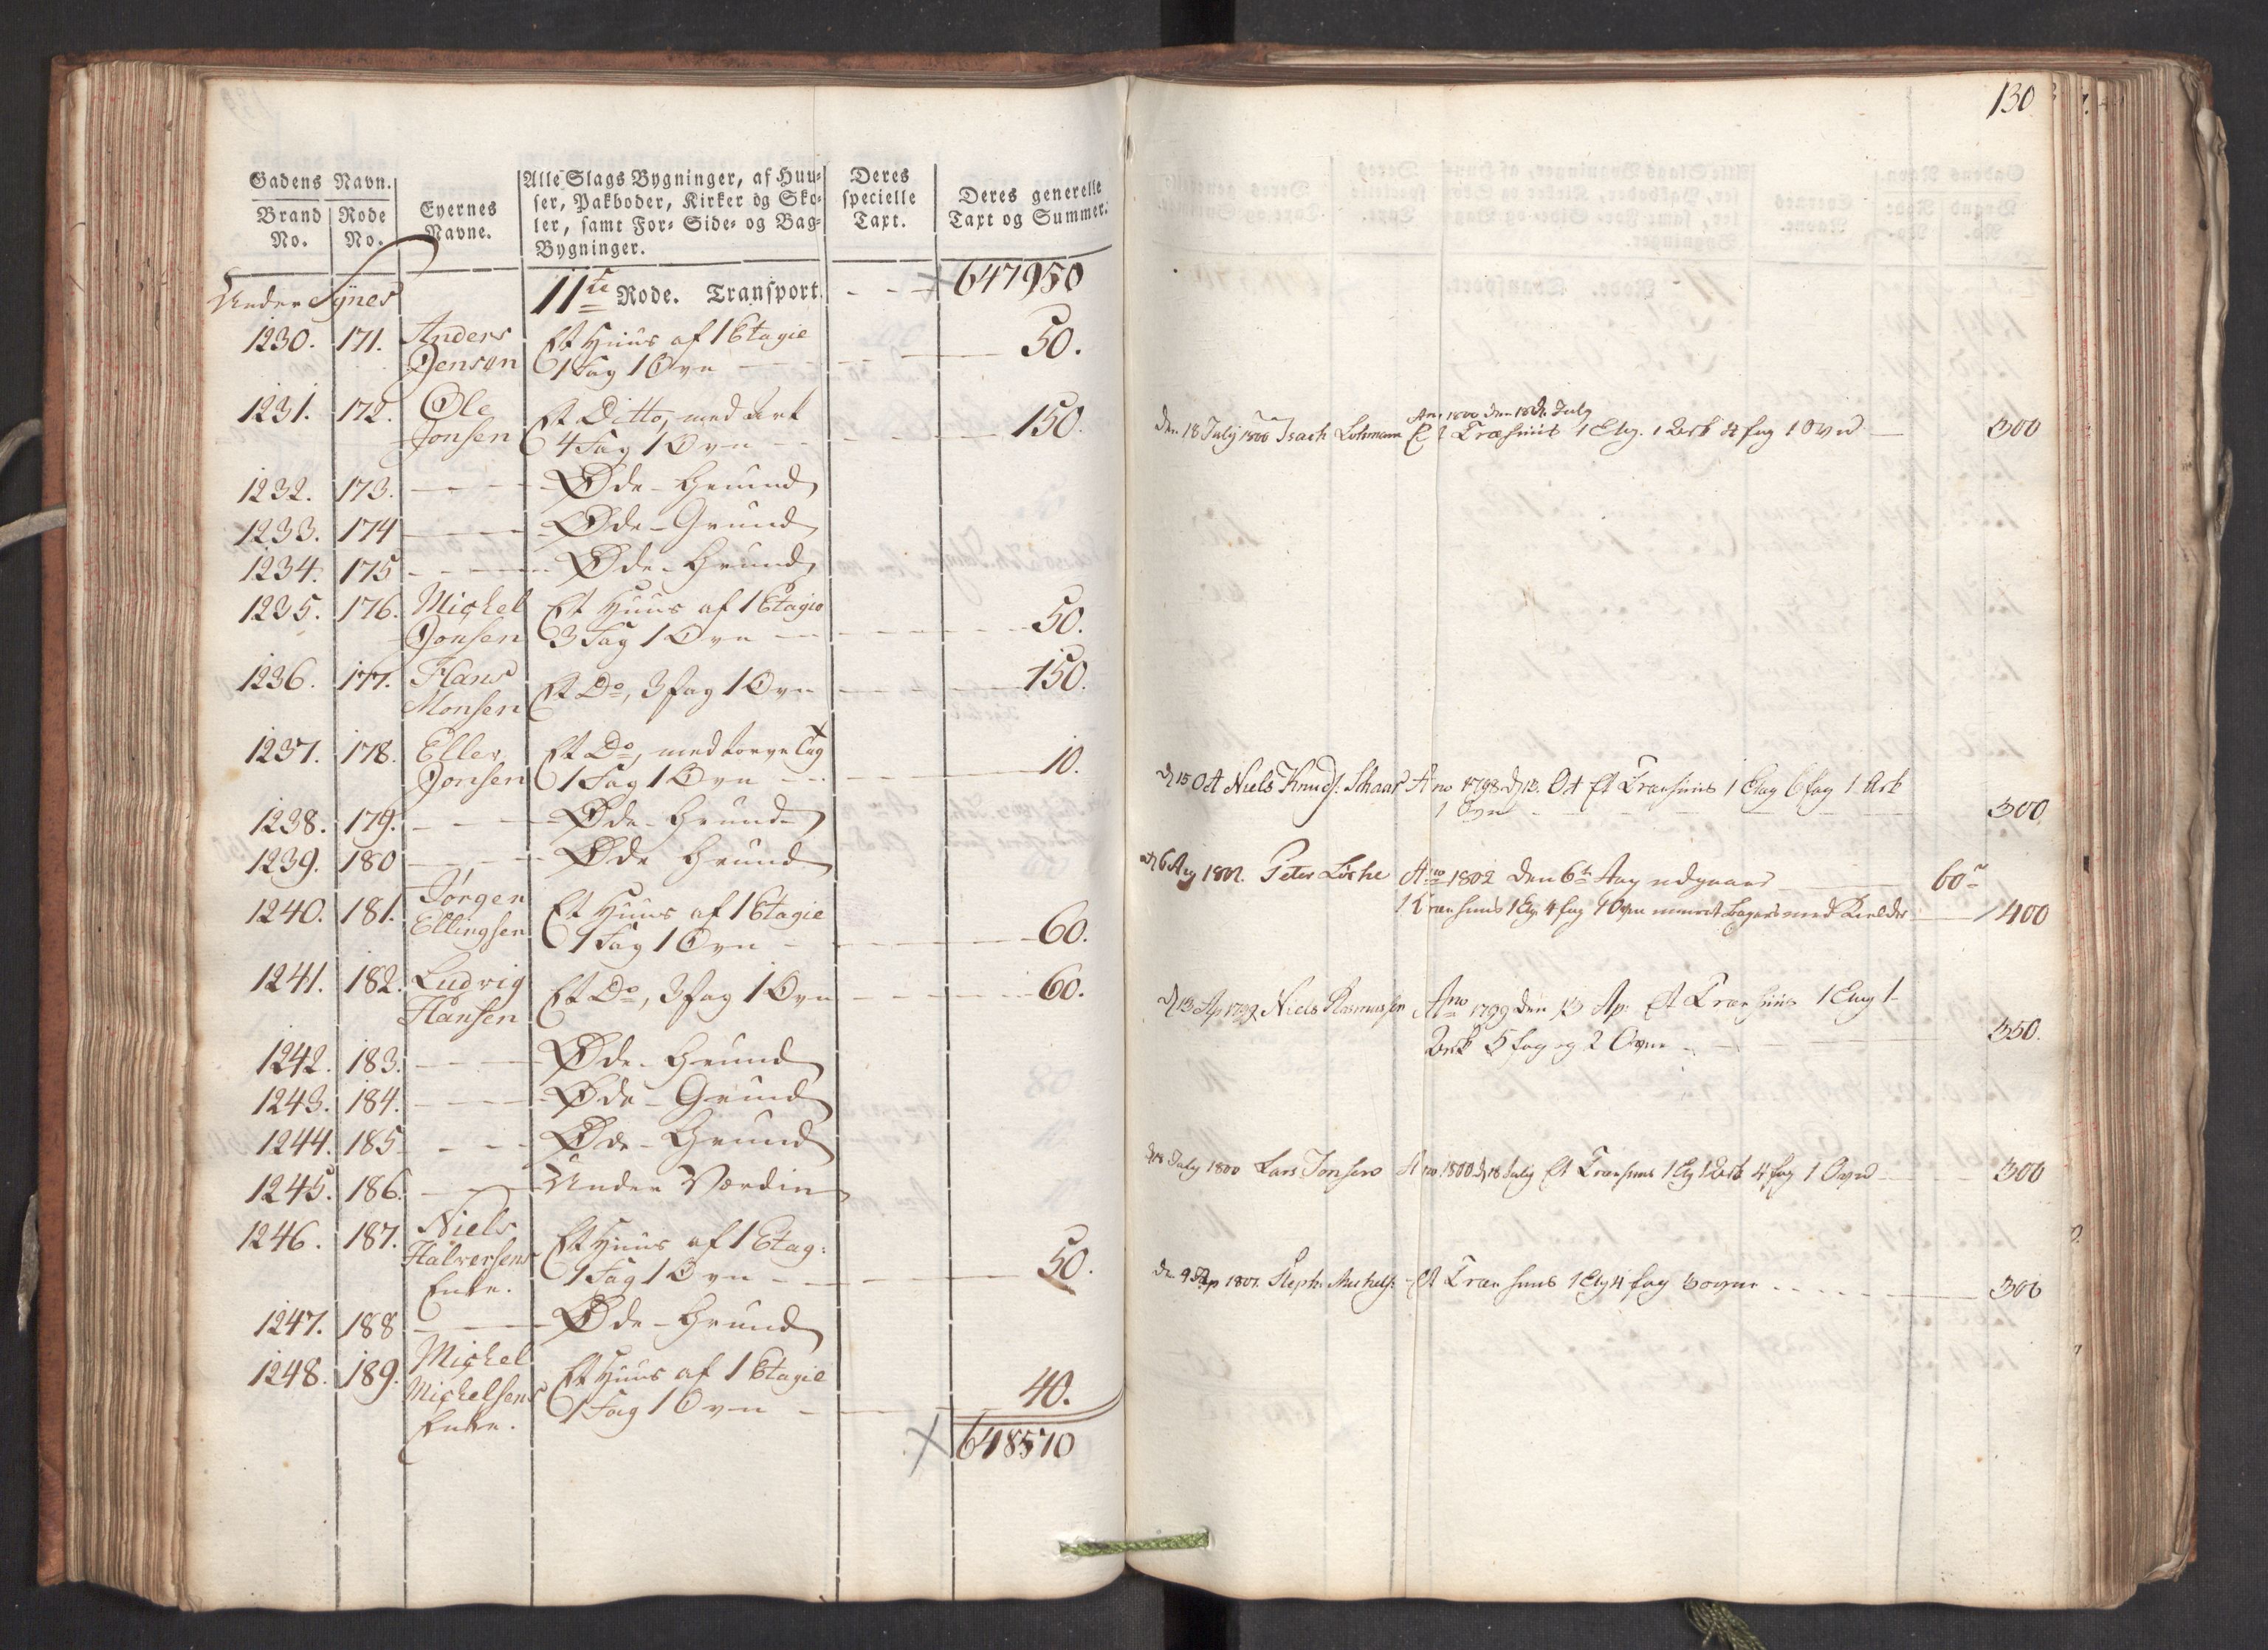 Gadens Navn.
Brand No.
Rode No.
Eyernes Navne.
Alle Slags Bygninger, af Huu-
ser, Pakboder, Kirker og Sko-
ler, samt For- Side- og Bag-
Bygninger.
Deres specielle Taxt.
Deres generelle Taxt og Summer.
Under Synes 11te Rode. Transport. 647950
1230. 171. Anders Et Huus af 1 Etagie 50.
Jensen 1 Fag 1 Ovn
1231. 172. Ole Et Ditto, med Ark 150.
Jonsen 4 Fag 1 Ovn
1232. 173. Øde-Grund
1233. 174 Øde-Grund
1234. 175 Øde-Grund
1235. 176. Michel Et Huus af 1 Etagie 50.
Jonsen 3 Fag 1 Ovn
1236. 177. Hans 150.
Monsen Et Do, 3 Fag 1 Ovn
1237. 178. Eller Et Do, med torve Tag 10.
Jonsen 1 Fag 1 Ovn
1238. 179. Øde-Grund
1239. 180 Øde Grund
1240. 181. Jørgen Et Huus af 1 Etagie 60.
Ellingsen 1 Fag 1 Ovn
1241. 182. Ludvig Et Do, 3 Fag 1 Ovn 60.
Hansen
1242. 183. Øde-Grund
1243. 184. Øde-Grund
1244. 185 Øde-Grund
1245. 186. Under Værdin
1246. 187. Niels Et Huus af 1 Etag: 50.
Halversens 1 Fag 1 Ovn
Enke.
1247. 188 Øde-Grund
1248. 189. Michel Et Huus af 1 Etagie 40.
Michelsens 1 Fag 1 Ovn
Enke.
648510
130
Ano 1800 den 18de July
den 18 July 1800 Isach Lohmann Et Træhuus 1 Etg. 1 Ark 4 fag 1 Ovn 300
d 15 Oct Niels Knuds: Skaar Ano 1798 d 13. Oct Et Træehuus 1 Etag 6 fag 1 Ark
1 Ovn 300
d 6 Aug 1802. Peter Ano 1802 den 6te Aug udgaaer 60
1 Træehuus 1 Etg 4 fag 1 Ovn muuret med Kielder 400
d 13 Ap 1799 Niels Rasmussen Ano 1799 den 13 Ap: Et Træehuus 1 Etag 1
Ark 5 fag og 2 Ovne 350.
d 18 July 1800 Lars Jonsen Ano 1800 d 18 July Et Træehuus 1 Etg 1 Ark 4 fag 1 Ovn 300
den 9 Ap 1801. Steph: Michels: Et Træehuus 1 Etg 4 fag 3 ovne 300